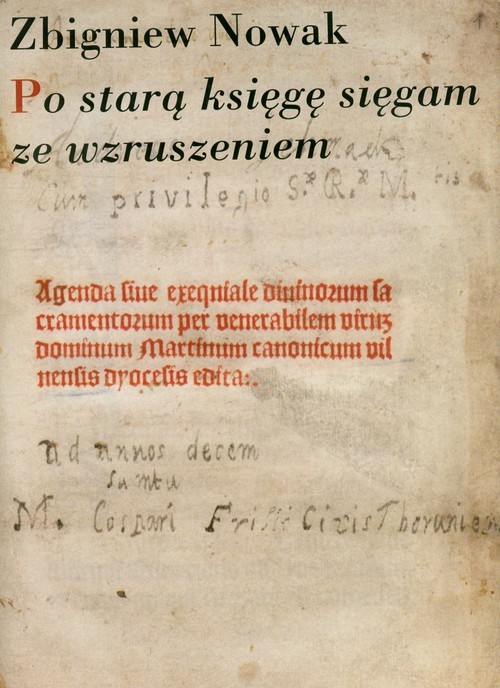 Zbigniew Nowak
Po starą księgę sięgam
ze wzruszeniem
Cum privilegio S. R. M.
Agenda siue exequiale diuinorum sa
cramentorum per venerabilem viruʒ
dominum Martinum canonicum vil
nensis dyocesis edita:.
ad annos decem
sumtu
M. Caspari Frisii Civis Thoruniens